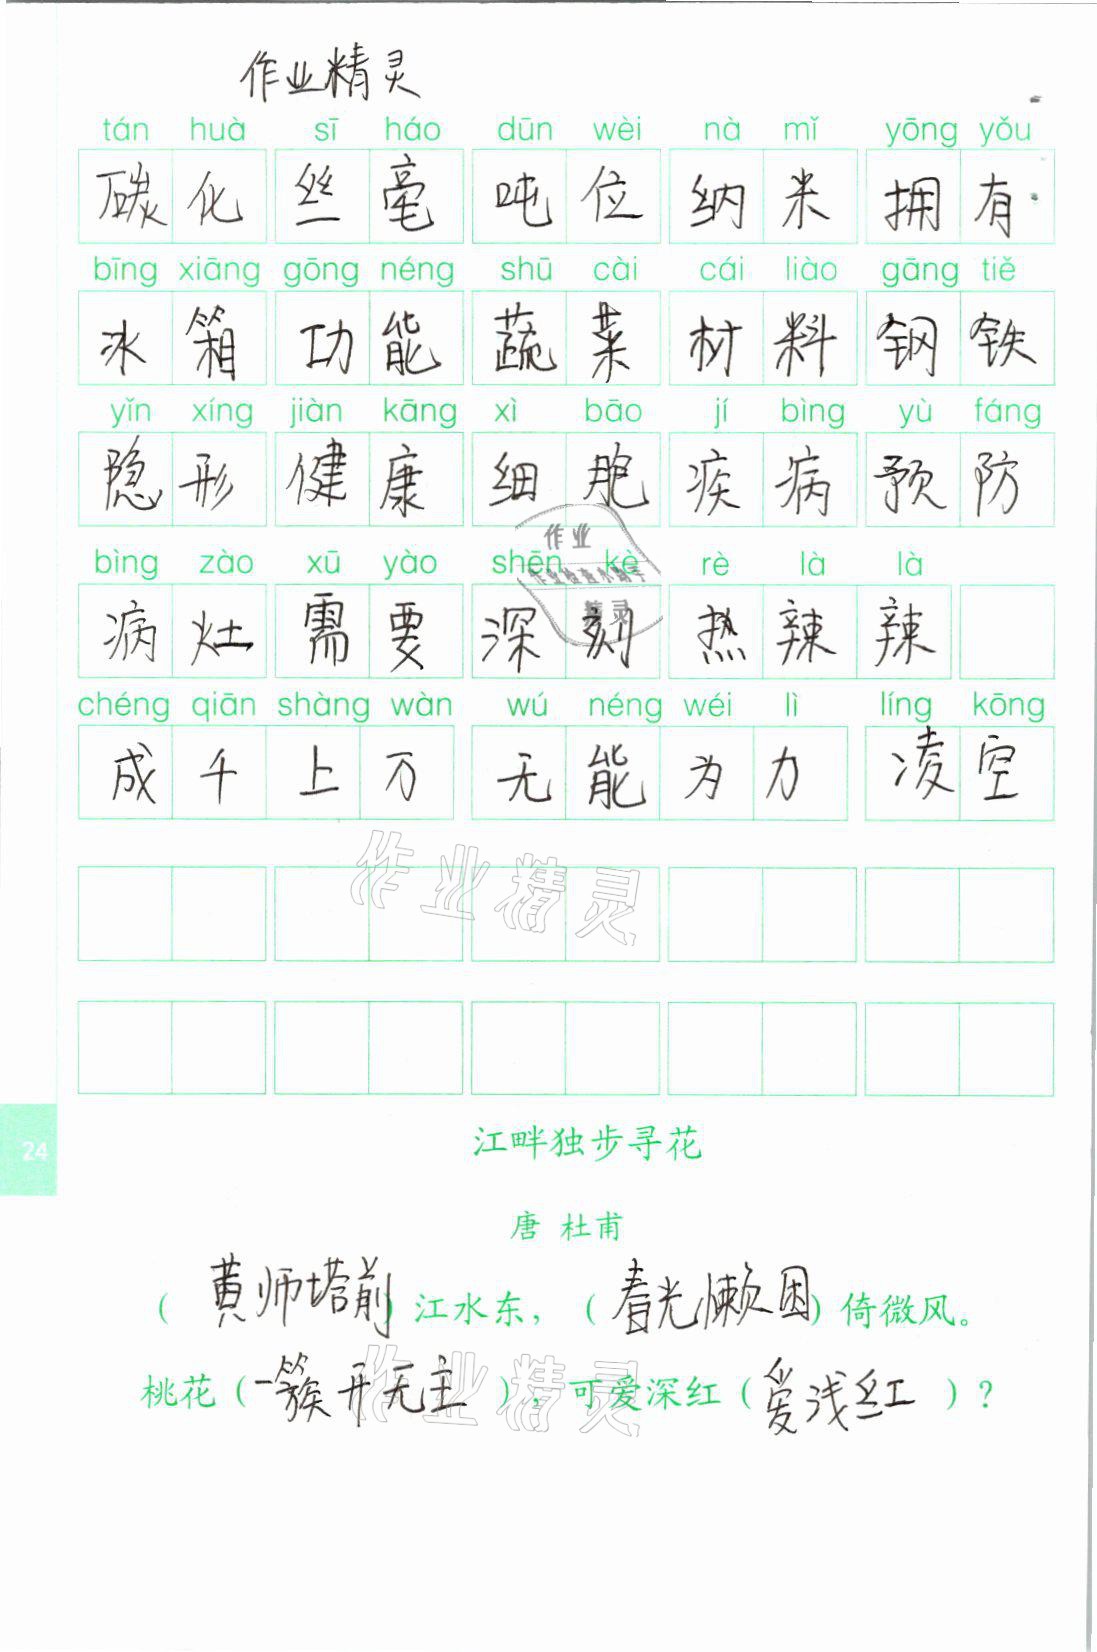 作业精灵
tán huà sī háo dūn wèi nà mǐ yōng yǒu
碳化 丝毫 吨位 纳米 拥有
bīng xiāng gōng néng shū cài cái liào gāng tiě
冰箱 功能 蔬菜 材料 钢铁
yǐn xíng jiàn kāng xì bāo jí bìng yù fáng
隐形 健康 细胞 疾病 预防
作业
bìng zào xū yào shēn kè rè là là
作业检查小帮手
精灵
病灶 需要 深刻 热辣辣
chéng qiān shàng wàn wú néng wéi lì líng kōng
成千上万 无能为力 凌空
作业精灵
江畔独步寻花
24
唐 杜甫
（黄师塔前）江水东，（春光懒困）倚微风。
作业精灵
桃花（一簇开无主），可爱深红（爱浅红）？